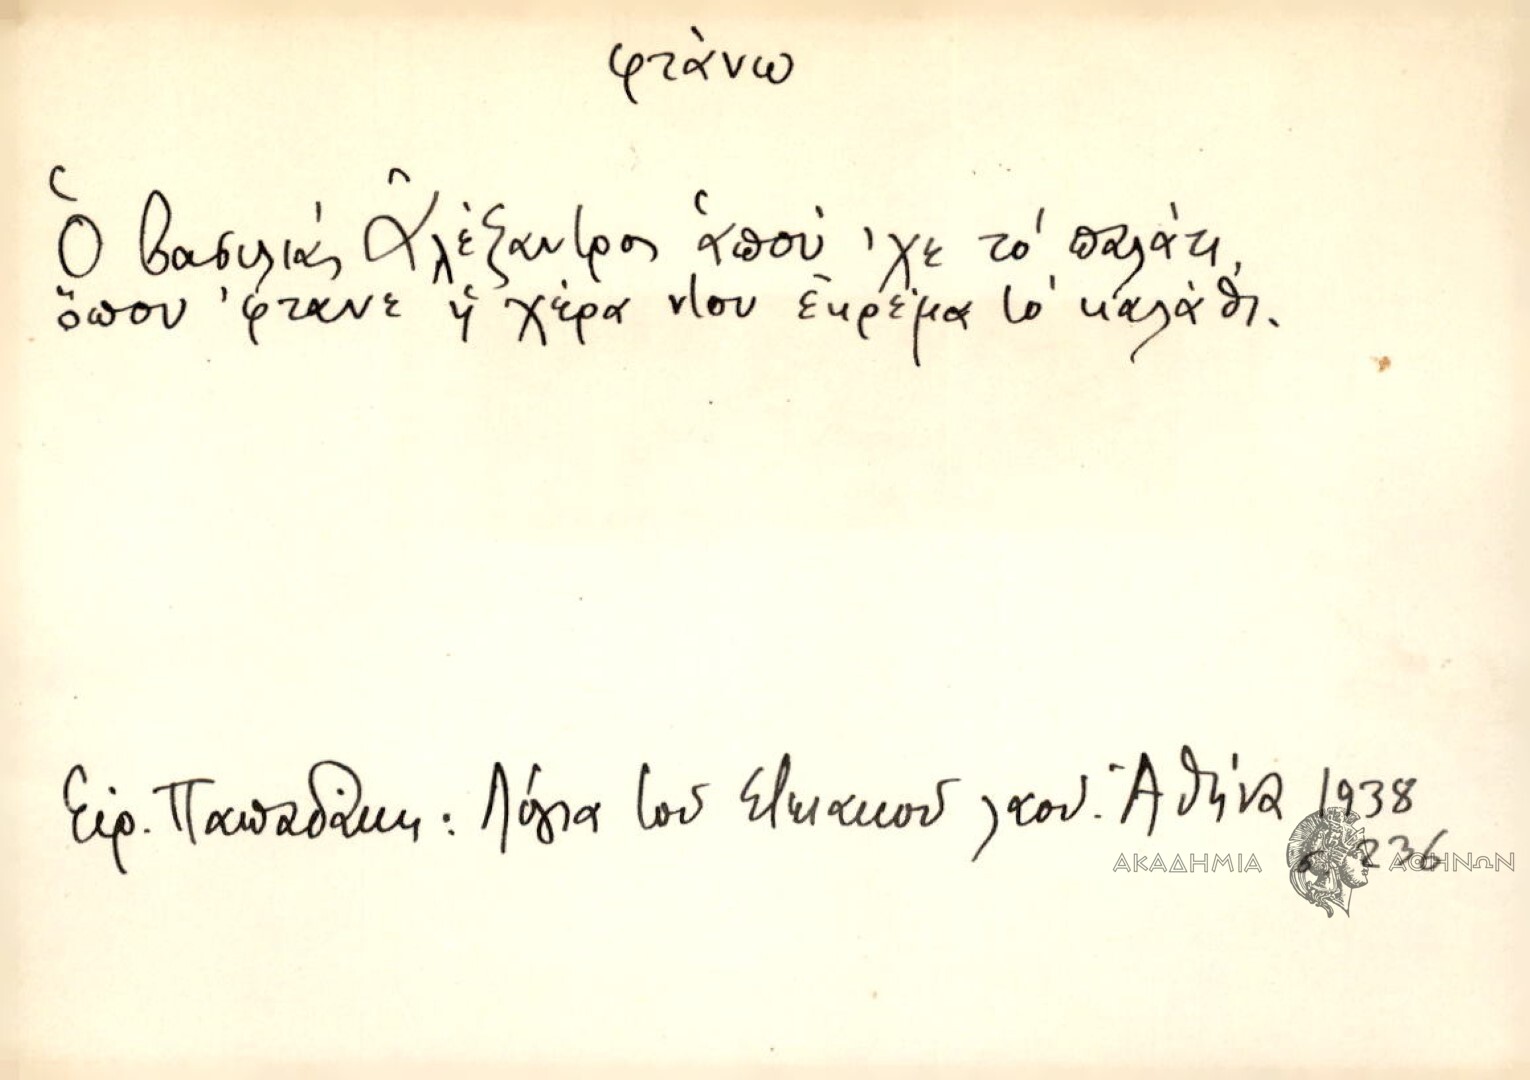 φτάνω
Ὁ βασιλιὰς Ἀλέξαντρος ἁποὺ 'χε τὸ παλάτι,
ὅπου 'φτανε ἡ χέρα ντου ἐκρέμα τὸ καλάθι.
Εἰρ. Παπαδάκη: Λόγια τοῦ Στειακοῦ λαοῦ. Ἀθήνα 1938
σ. 236
ΑΚΑΔΗΜΙΑ ΑΘΗΝΩΝ